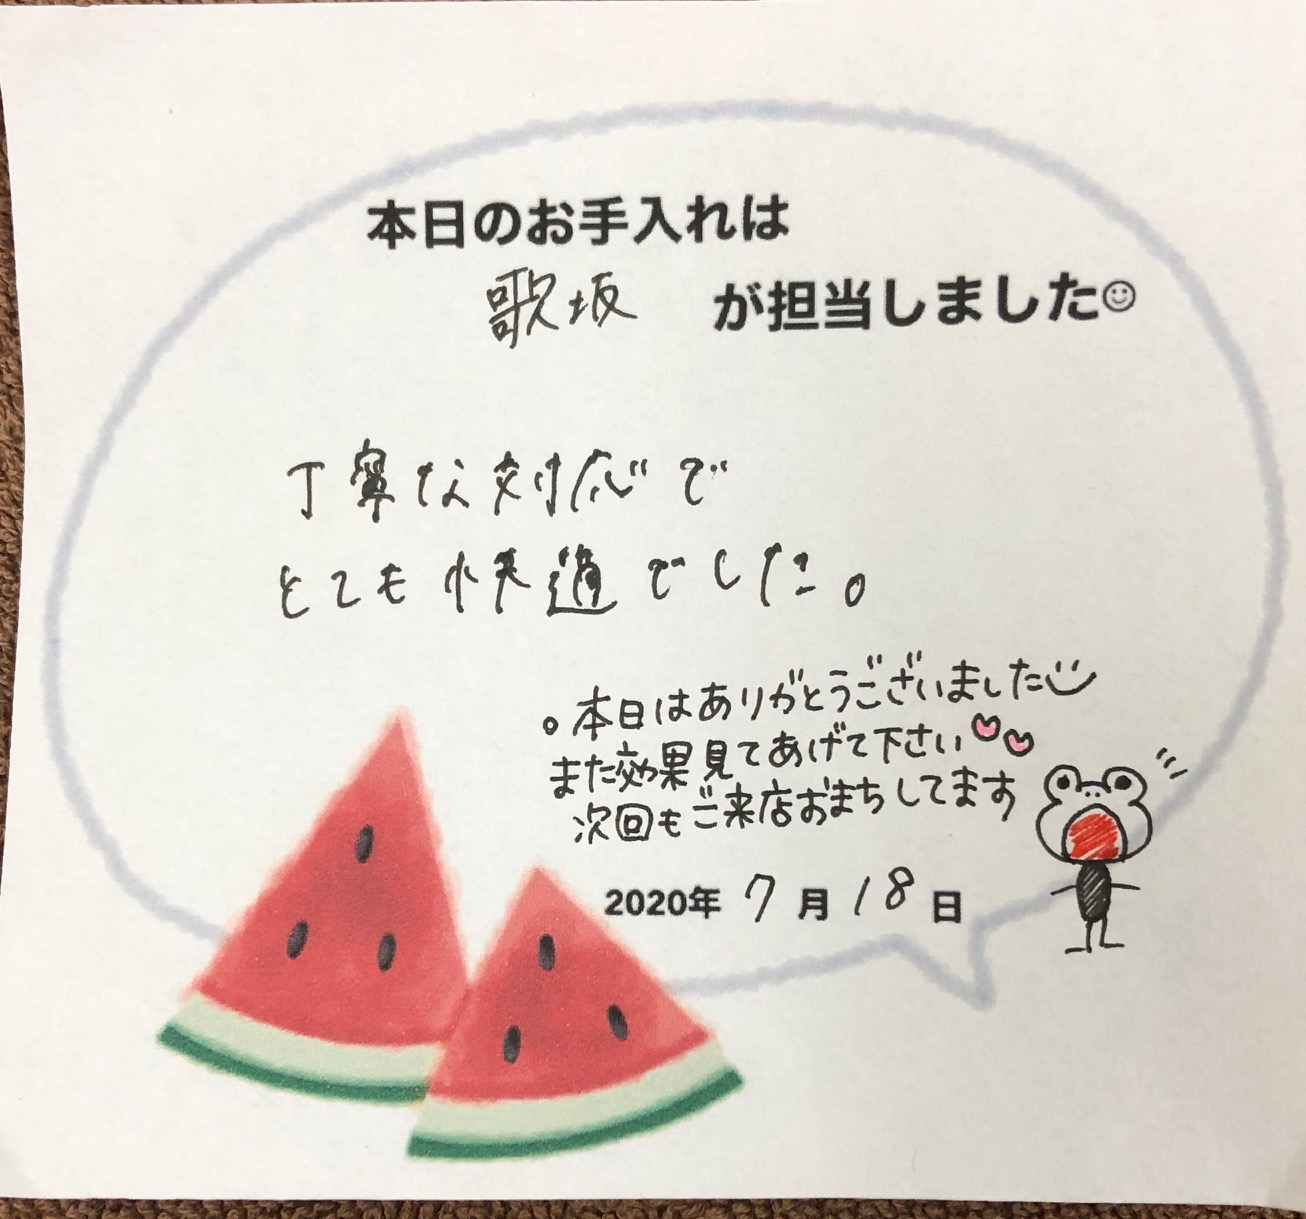 本日のお手入れは
歌坂 が担当しました☺
丁寧な対応で
とても快適でした。
。本日はありがとうございました
また効果見てあげて下さい
次回もご来店おまちしてます
2020年 7月 18日